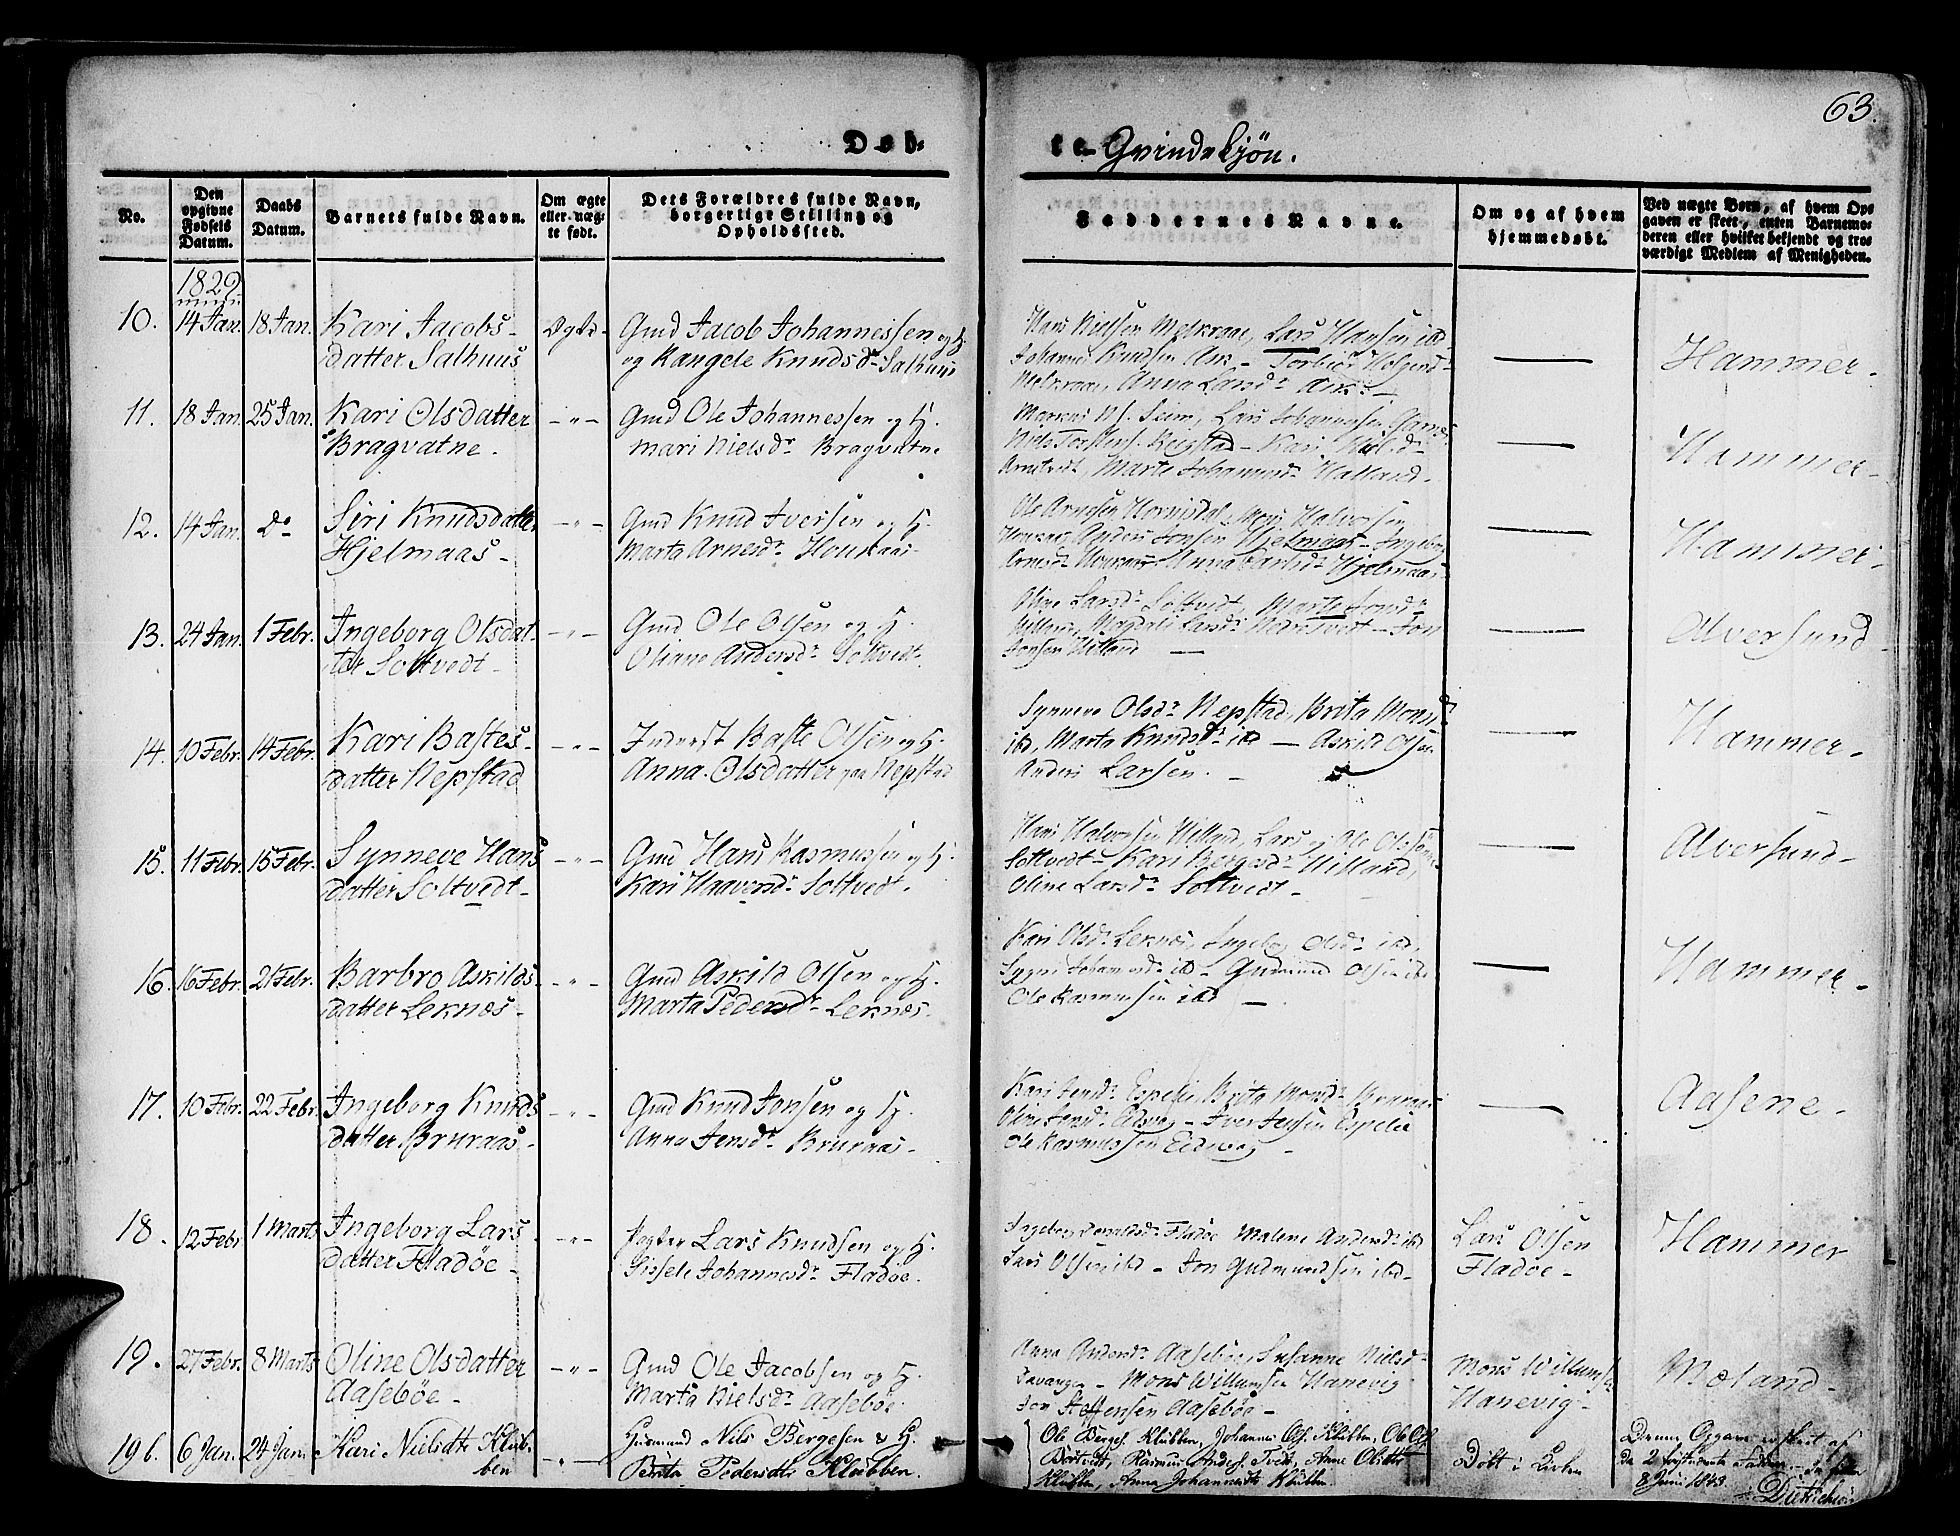 63.
Døb-
te Qvindekjøn.
No.
Den opgivne Fødsels Datum.
Daabs Datum.
Barnets fulde Navn.
Om ægte eller uægte født.
Dets Forældres fulde Navn, borgerlige Stilling og Opholdssted.
Faddernes Navne.
Om og af hvem hjemmedøbt.
Ved uægte Børn, af hvem Opgaven er skeet, enten Barnemoderen eller hvilket bekjendt og troværdigt Medlem af Menigheden.
1829
10. 14 Jan. 18 Jan. Kari Jacobs-
datter Salhuus
Gmd Jacob Johannessen og H.
og Rangele Knudsdr Salhuus
Hans Nielsen Melkraae, Lars Hansen ibd
Johannes Knudsen Ask - Torbiør Holgersd
Melkraae, Anna Larsdr Ask -
Hammer.
11. 18 Jan. 25 Jan. Kari Olsdatter
Bragvatne.
-"-
Gmd Ole Johannessen og H.
Mari Nielsdr Bragvatne
Seim, Lars Johannessen
Marte Johannesdr Halland.
Hammer-
12. 14 Jan. Do Siri Knudsdatter
Hjelmaas-
-"-
Gmd Knud Iversen og H.
Marta Arnesdr Houkaas
Ole Arnesen Hornisdal, Mons Halvorsen
Houkaas, Anders Jonsen Hjelmaas - Ingebor
Arnesdr Houkaas, Anna Larsdr Hjelmaas
Hammer-
13. 24 Jan. 1 Febr. Ingeborg Olsdat-
ter Soltvedt-
-"-
Gmd Ole Olsen og H.
Oliane Andersdr Soltvedt.
Oline Larsdr Soltvedt, Marte Jonsdr
Magdeli Larsdr - Jon
Jonsen Hilland -
Alversund-
14. 10 Febr. 14 Febr. Kari Bastes-
datter Nepstad
-"-
Inderst Baste Olsen og H.
Anna Olsdatter paa Nepstad
Synneve Olsdr Nepstad, Brita Monsd
ibd, Marta Knudsdr ibd - Askild Olsen
Anders Larsen. -
Hammer-
15. 11 Febr. 15 Febr. Synneve Hans
datter Soltvedt-
-"-
Gmd Hans Rasmussen og H.
Kari Haaversdr Soltvedt.
Hans Halvorsen Hilland, Lars og Ole Olssønner
Soltvedt - Kari Børgesdr Hilland,
Oline Larsdr Soltvedt -
Alversund-
16. 16 Febr. 21 Febr. Barbro Askilds-
datter Leknes-
-"-
Gmd Askild Olsen og H.
Marta Pedersdr Leknes.
Kari Olsdr Leknes, Ingebor Olsdr ibd,
Johannesdr ibd - Gudmund Olsen ibd
Ole Rasmussen ibd -
Hammer-
17. 10 Febr. 22 Febr. Ingeborg Knuds
datter Bruraas-
-"-
Gmd Knud Jonsen og H.
Anna Jensdr Bruraas-
Kari Jensdr Espelie, Brita Monsdr
Eidsvog - Iver Jensen Espelie
Ole Rasmussen Eidsvog -
Aasene-
18. 12 Febr 1 Marts Ingeborg Lars
datter Fladøe-
-"-
Pogter Lars Knudsen og H.
Sissele Johannesdr Fladøe.
Ingebor Fladøe Malene Andersdr ibd
Lars Olsen ibd - Jon Gudmundsen ibd-
Lars Olsen
Fladøe-
Hammer
19. 27 Febr. 8 Marts Oline Olsdatter
Aasebøe-
-"-
Gmd Ole Jacobsen og H.
Marta Nielsdr Aasebøe
Anna Andersdr Aasebøe, Susanne Nielsd
- Mons Willumsen Hanevig
Jon Steffensen Aasebøe-
Mons Willumsen
Hanevig-
Mæland-
19 b. 6 Jan. 24 Jan. Kari Nielsdtr Klub-
ben
-"-
Husmand Nils Bergesen & H.
Berita Pedersdtr Klubben.
Ole Berges. Klubben, Johannes Ols. Klubben, Ole Ols.
Rasmus Anders. Tveit, Anne Olsdtr
Klubben, Anna Johannesdtr Klubben.
Døbt i Kirken
Denne Opgave
de 2 Faddere
8 Juni 1843.